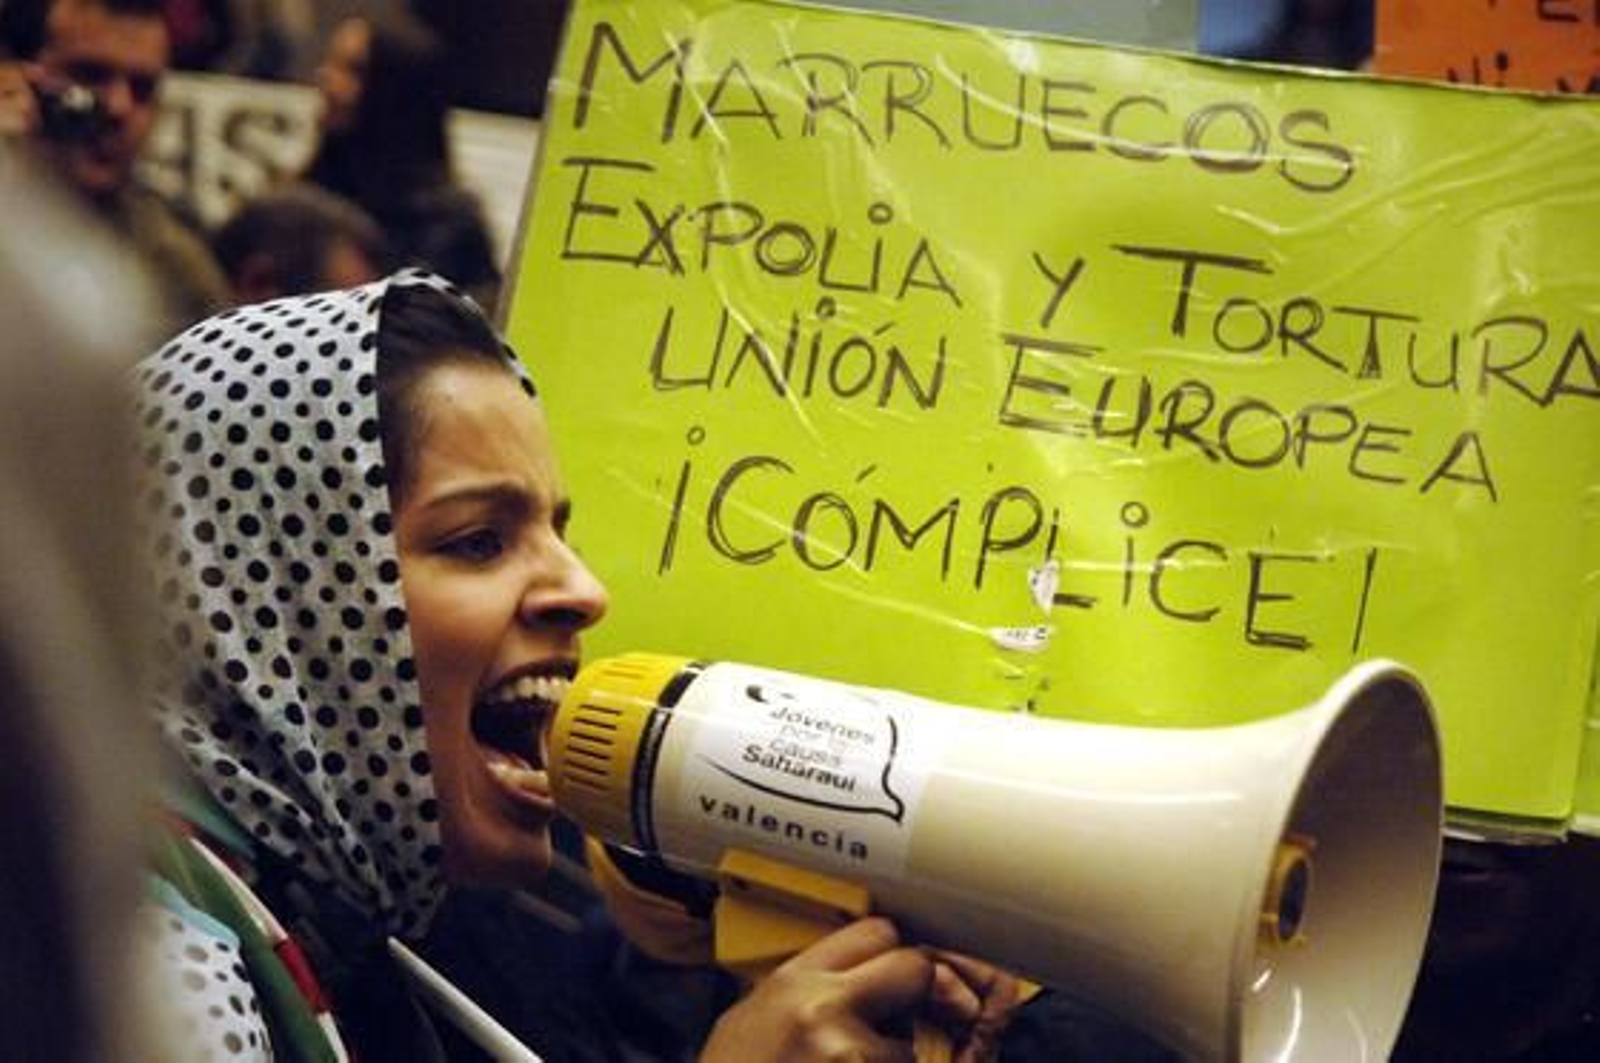 MARRUECOS
EXPOLIA Y TORTURA
UNIÓN EUROPEA
¡CÓMPLICE!
Jóvenes
por la
causa
Saharaui
valencia